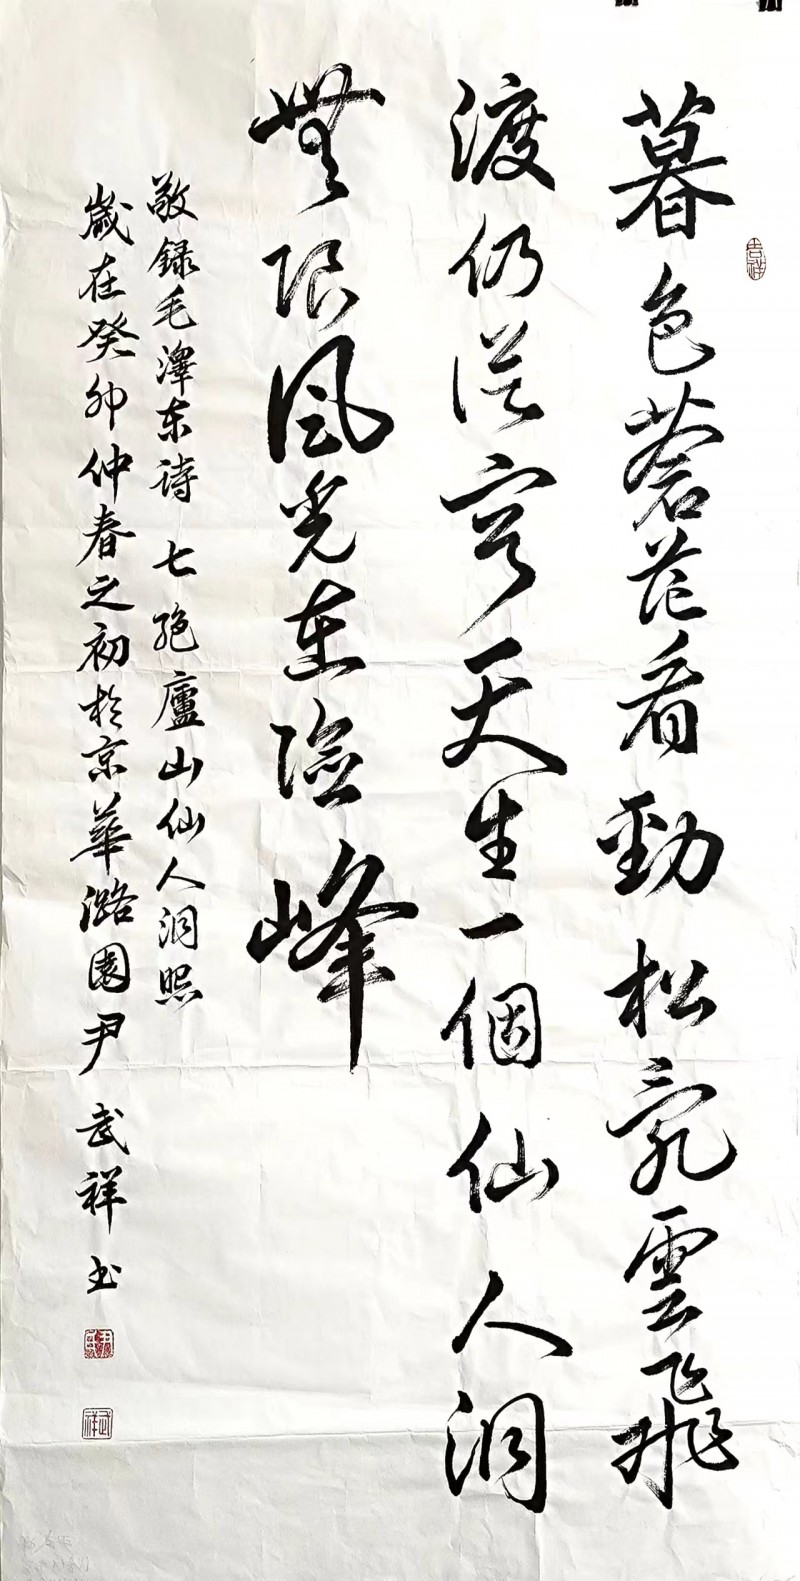 暮色蒼茫看勁松亂雲飛
渡仍從容天生一個仙人洞
無限風光在險峰
敬録毛澤东詩 七絕廬山仙人洞照
歲在癸卯仲春之初於京華潞園尹武祥书
吉祥
武祥